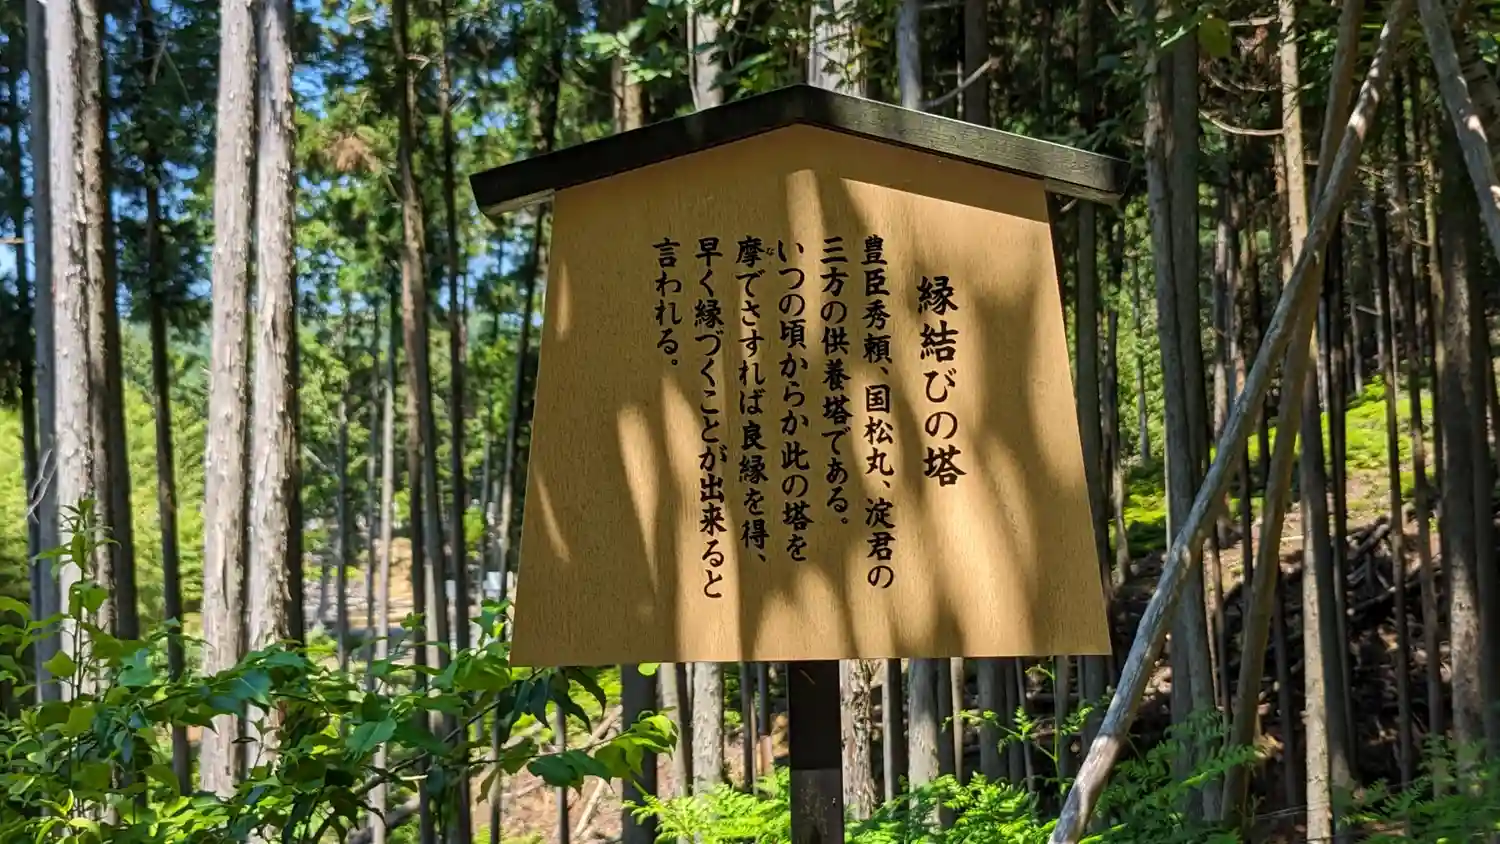 縁結びの塔
豊臣秀頼、国松丸、淀君の
三方の供養塔である。
いつの頃からか此の塔を
摩でさすれば良縁を得、
早く縁づくことが出来ると
言われる。